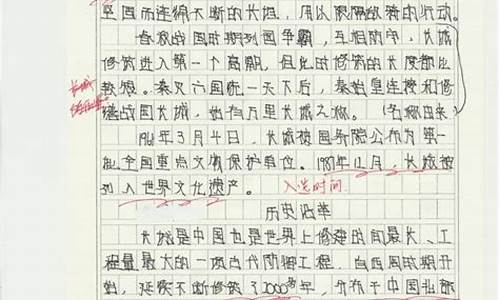 坚固而连绵不断的长垣，用以限隔敌骑的行动。
春秋战国时期列国争霸，互相防守，长城
修筑进入第一个高潮，但此时修筑的长度都比
较短。秦灭六国统一天下后，秦始皇连接和修
缮战国长城，始有万里长城之称。（名称由来）
长城
1961年3月4日，长城被国务院公布为第一
批全国重点文物保护单位。1987年12月，长城被
列入世界文化遗产。 入选时间
历史沿革
长城是中国也是世界上修建时间最长、工
程量最大的一项古代防御工程，自西周时期开
始，延续不断修筑了2000多年，分布于中国北部